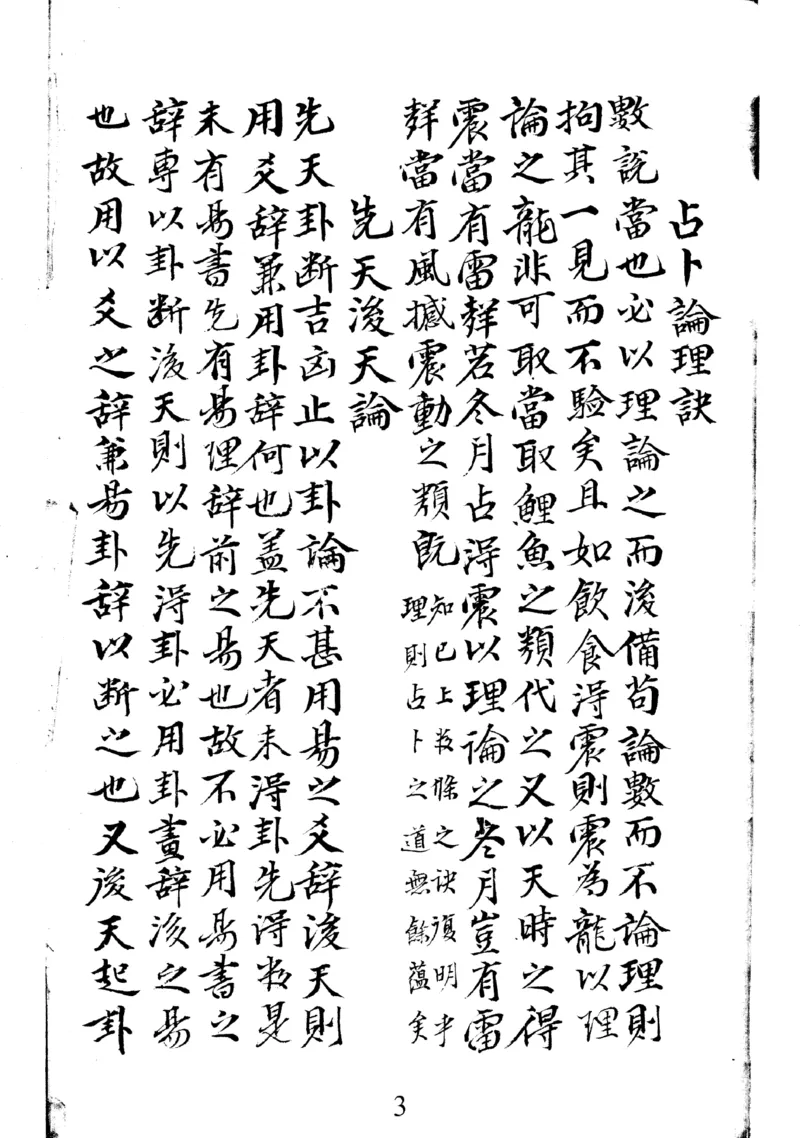 占卜論理訣
數說當也必以理論之而後備苟論數而不論理則
拘其一見而不驗矣且如飲食得震則震為龍以理
論之龍非可取當取鯉魚之類代之又以天時之得
震當有雷聲若冬月占得震以理論之冬月豈有雷
聲當有風撼震動之類既知已上数條之訣復明乎
理則占卜之道無餘蘊矣
先天後天論
先天卦断吉凶止以卦論不甚用易之爻辞後天則
用爻辞兼用卦辞何也盖先天者未得卦先得数是
未有易書先有易理辞前之易也故不必用易書之
辞專以卦断後天則以先得卦必用卦畫辞後之易
也故用以爻之辞兼易卦辞以断之也又後天起卦
3